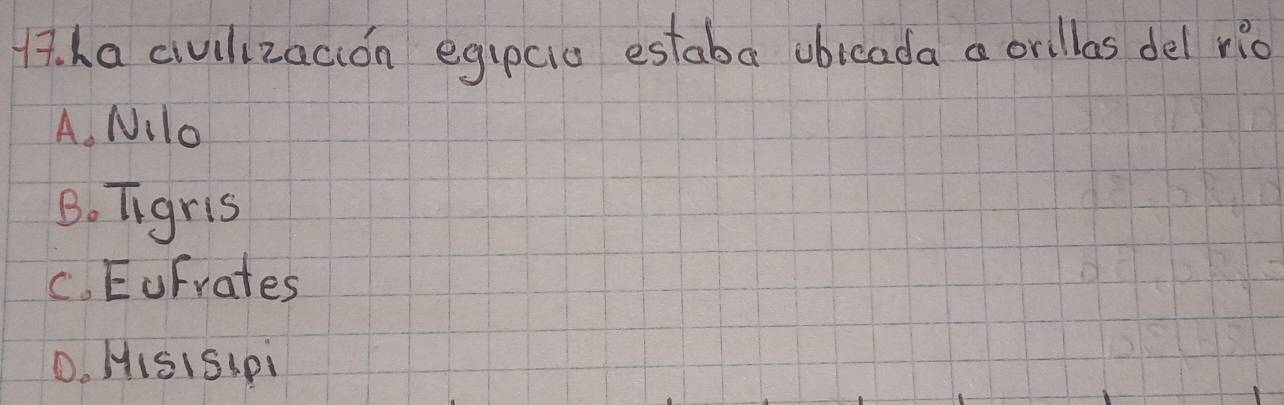 17. La civilización egipcia estaba ubicada a orillas del río
A. Nilo
B. Tigris
C. Eufrates
D. Misisipi